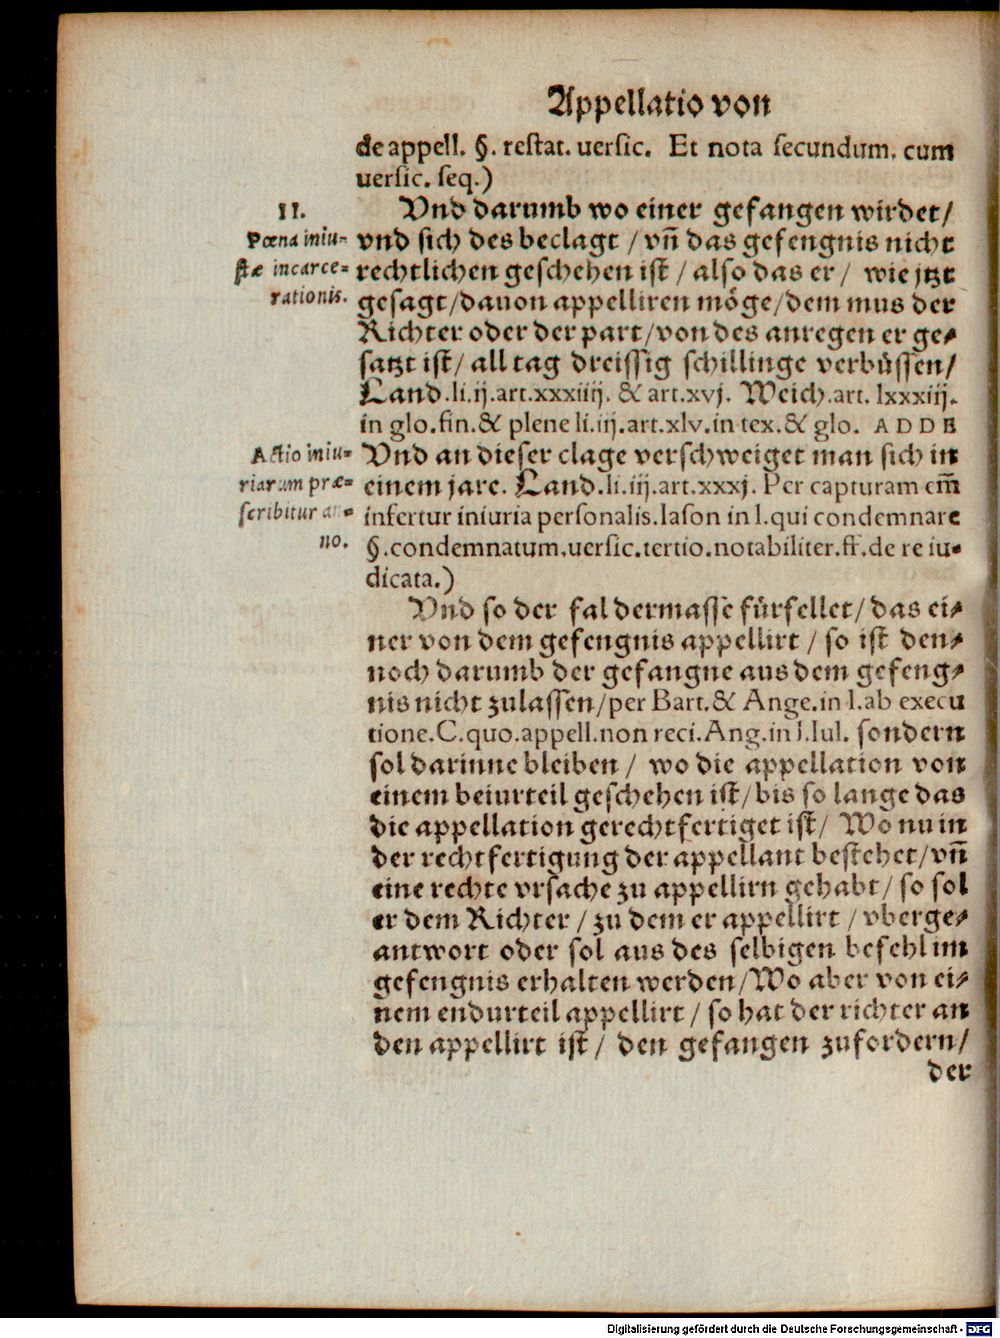 Appellatio von
de appell. §. restat. uersic. Et nota secundum. cum
uersic. seq.)
11.
Pœna iniu-
stæ incarce-
rationis.
Vnd darumb wo einer gefangen wirdet/
vnd sich des beclagt / vñ das gefengnis nicht
rechtlichen geschehen ist / also das er / wie jtzt
gesagt/dauon appelliren möge/dem mus der
Richter oder der part/von des anregen er ge-
satzt ist/ all tag dreissig schillinge verbüssen/
Land.li.ij.art.xxxiiij. & art.xvj. Weich.art. lxxxiij.
in glo.fin.& plene li.iij.art.xlv.in tex.& glo. ADDE
Actio iniu-
riarum præ-
scribitur an-
no.
Vnd an dieser clage verschweiget man sich in
einem jare. Land.li.iij.art.xxxj. Per capturam em̃
infertur iniuria personalis.Iason in l.qui condemnare
§.condemnatum.uersic.tertio.notabiliter.ff.de re iu-
dicata.)
Vnd so der fal dermasse fürfellet/das ei-
ner von dem gefengnis appellirt / so ist den-
noch darumb der gefangne aus dem gefeng-
nis nicht zulassen/per Bart.& Ange.in l.ab execu
tione.C.quo.appell.non reci.Ang.in l.Iul. sondern
sol darinne bleiben / wo die appellation von
einem beiurteil geschehen ist/bis so lange das
die appellation gerechtfertiget ist/ Wo nu in
der rechtfertigung der appellant bestehet/vñ
eine rechte vrsache zu appellirn gehabt/so sol
er dem Richter / zu dem er appellirt / vberge-
antwort oder sol aus des selbigen befehl im
gefengnis erhalten werden/Wo aber von ei-
nem endurteil appellirt / so hat der richter an
den appellirt ist/ den gefangen zufordern/
der
Digitalisierung gefördert durch die Deutsche Forschungsgemeinschaft - DFG